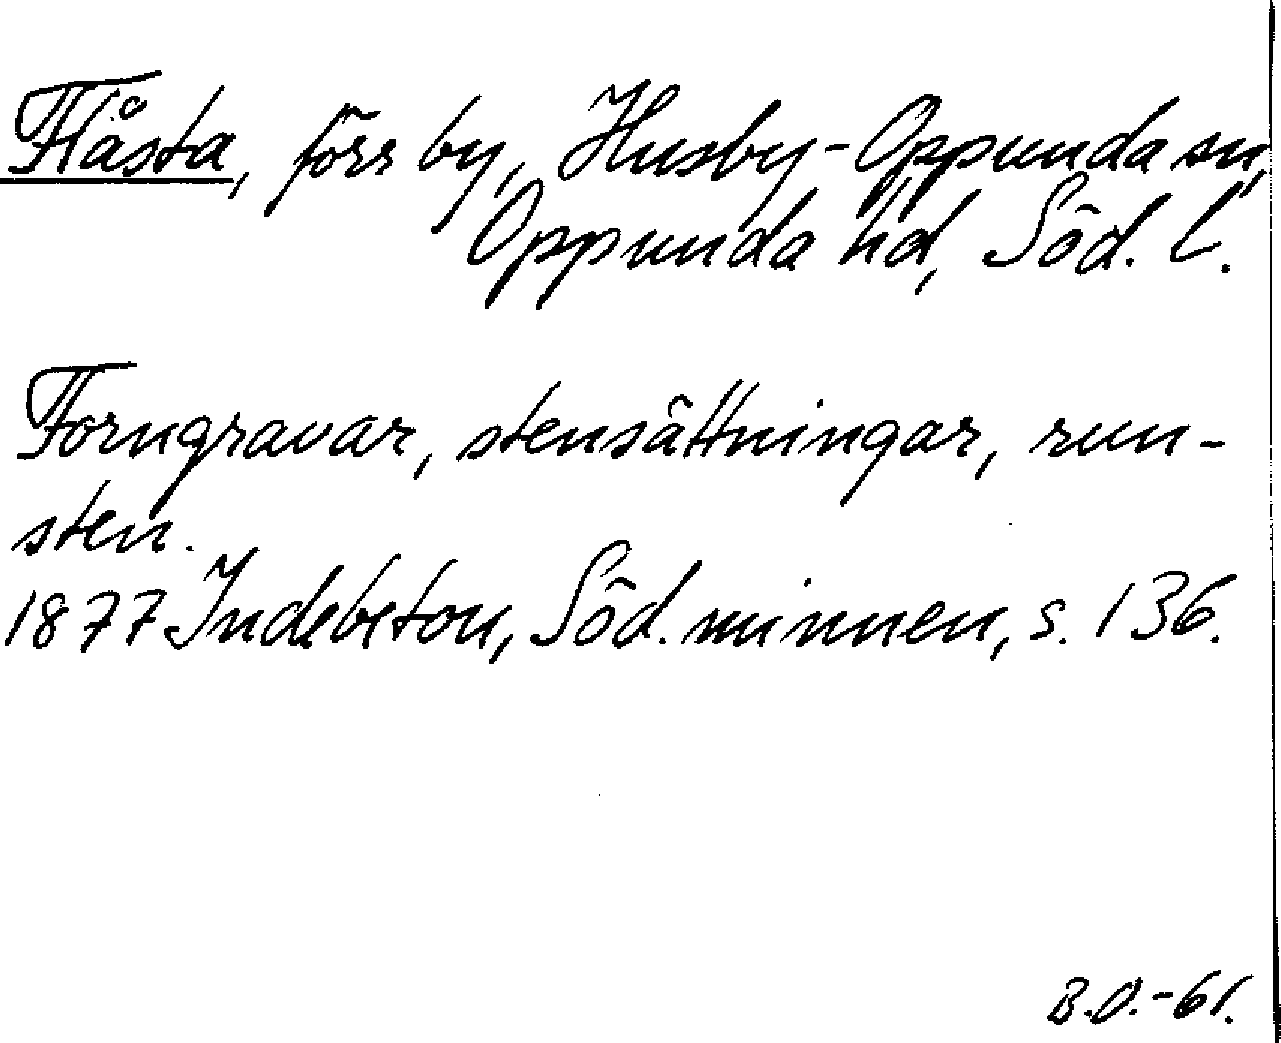 Flåsta, förr by, Husby-Oppunda sn,
Oppunda hd, Söd. l.
Forngravar, stensättningar, run-
sten.
1877 Indebetou, Söd. minnen, s. 136.
B.O.-61.